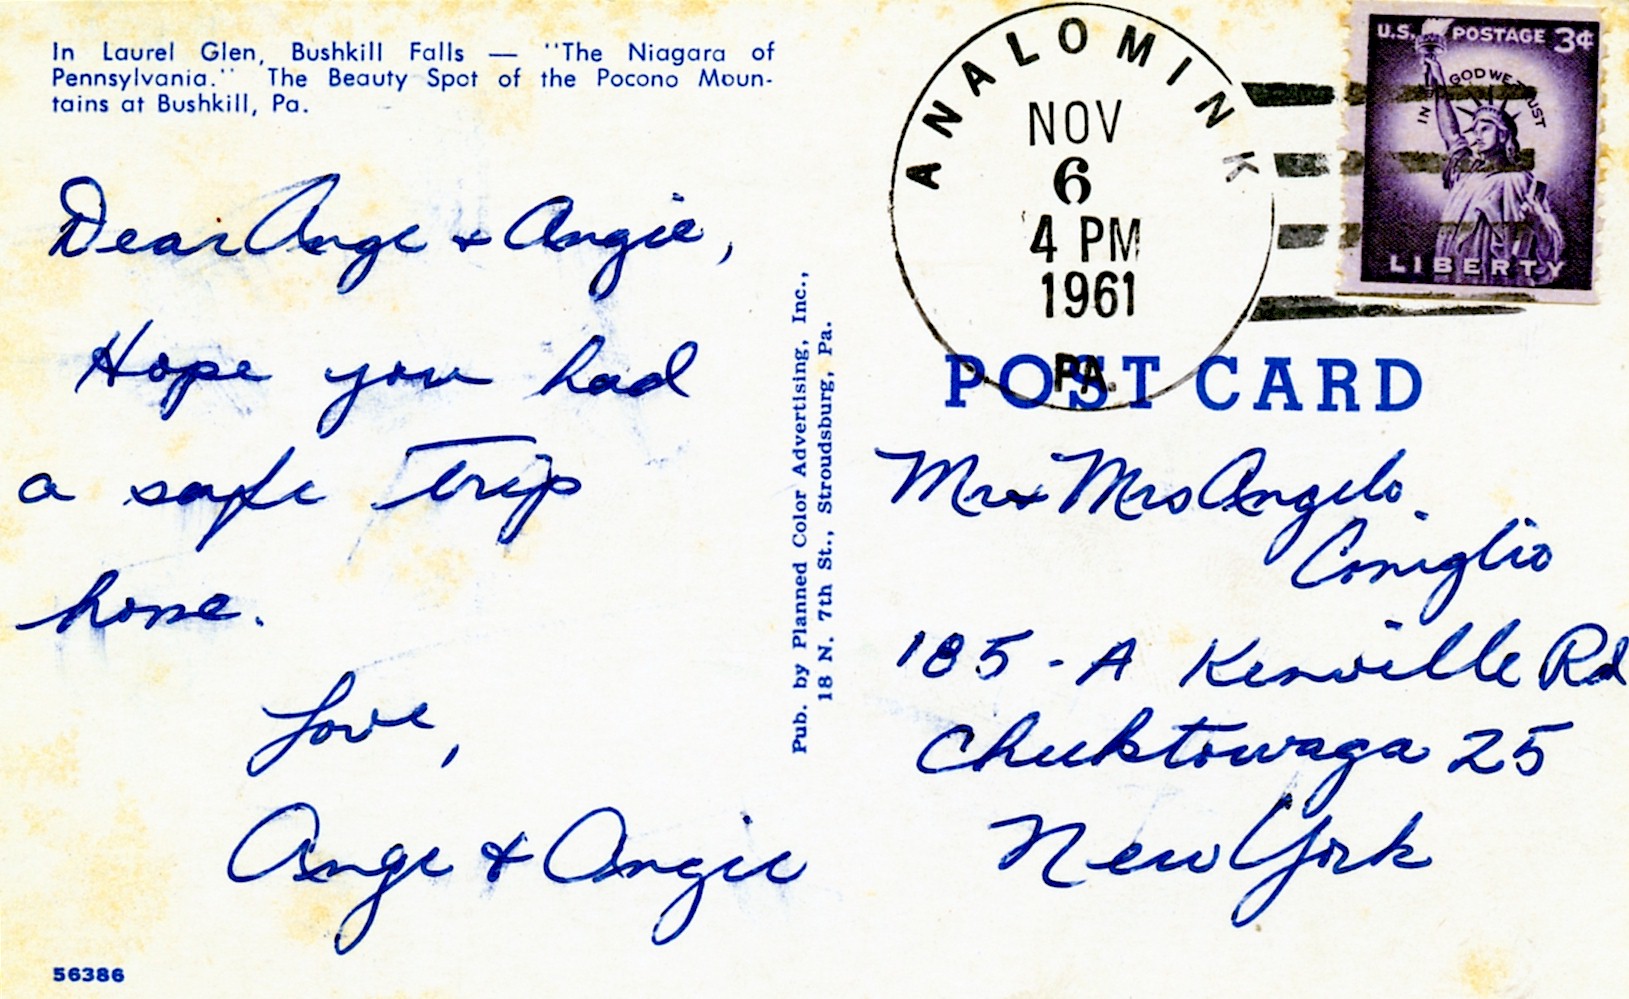 In Laurel Glen, Bushkill Falls — "The Niagara of
Pennsylvania." The Beauty Spot of the Pocono Moun-
tains at Bushkill, Pa.
Dear Ange + Angie,
Hope you had
a safe trip
home.
Love,
Ange + Angie
56386
Pub. by Planned Color Advertising, Inc.,
18 N. 7th St., Stroudsburg, Pa.
ANALOMINK
NOV
6
4 PM
1961
PA.
U.S. POSTAGE 3¢
IN GOD WE TRUST
LIBERTY
POST CARD
Mr + Mrs Angelo
Coniglio
185-A Kenville Rd
Cheektowaga 25
New York